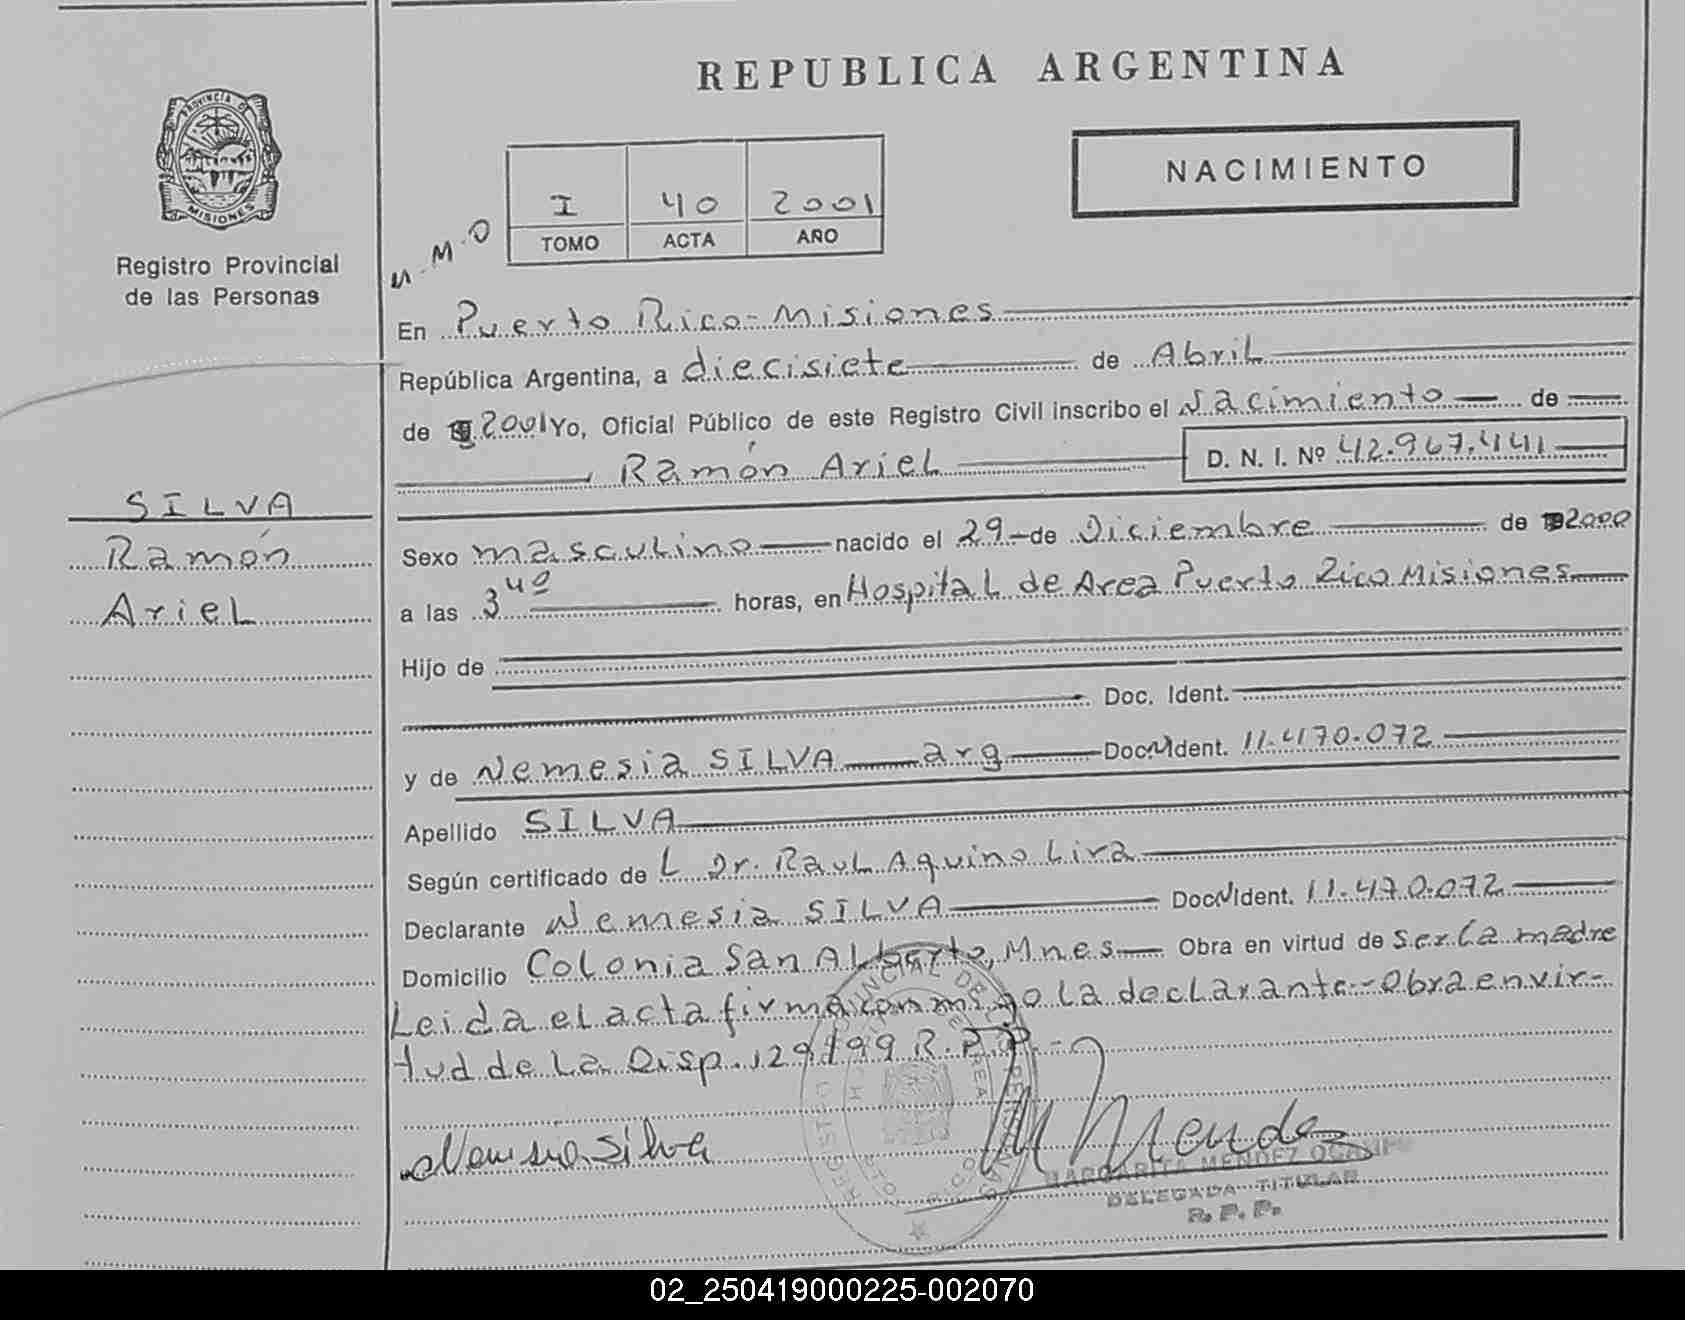 REPUBLICA ARGENTINA
PROVINCIA DE
MISIONES
Registro Provincial
de las Personas
NACIMIENTO
I 40 2001
TOMO ACTA AÑO
M.M.O
En Puerto Rico - Misiones
República Argentina, a diecisiete de Abril
de 2001 Yo, Oficial Público de este Registro Civil inscribo el Nacimiento de
Ramón Ariel D. N. I. Nº 42.967.441
SILVA
Ramón
Ariel
Sexo masculino nacido el 29 de Diciembre de 2000
a las 3 40 horas, en Hospital de Area Puerto Rico Misiones
Hijo de
Doc. Ident.
y de Nemesia SILVA arg Doc.N Ident. 11.470.072
Apellido SILVA
Según certificado de L Dr. Raul Aquino Lira
Declarante Nemesia SILVA Doc.N Ident. 11.470.072
Domicilio Colonia San Alberto, Mnes Obra en virtud de ser la madre
Leida el acta firma conmigo la declarante - Obra en vir-
tud de la Disp. 129/99 R.P.P.-
Nemesia Silva
M Mendez
MARGARITA MENDEZ OCAMPO
DELEGADA TITULAR
R. P. P.
02_250419000225-002070